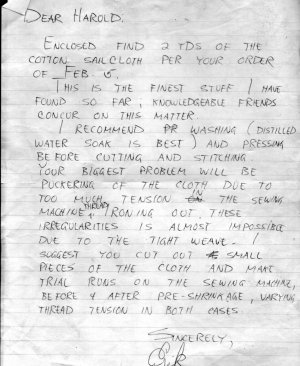 DEAR HAROLD,
ENCLOSED FIND 2 YDS OF THE
COTTON SAILCLOTH PER YOUR ORDER
OF FEB. 5.
THIS IS THE FINEST STUFF I HAVE
FOUND SO FAR; KNOWLEDGEABLE FRIENDS
CONCUR ON THIS MATTER.
I RECOMMEND PR WASHING (DISTILLED
WATER SOAK IS BEST) AND PRESSING
BEFORE CUTTING AND STITCHING.
YOUR BIGGEST PROBLEM WILL BE
PUCKERING OF THE CLOTH DUE TO
TOO MUCH TENSION IN THE SEWING
THREAD
MACHINE; IRONING OUT THESE
IRREGULARITIES IS ALMOST IMPOSSIBLE
DUE TO THE TIGHT WEAVE. I
SUGGEST YOU CUT OUT SMALL
PIECES OF THE CLOTH AND MAKE
TRIAL RUNS ON THE SEWING MACHINE,
BEFORE & AFTER PRE-SHRINKAGE, VARYING
THREAD TENSION IN BOTH CASES.
SINCERELY,